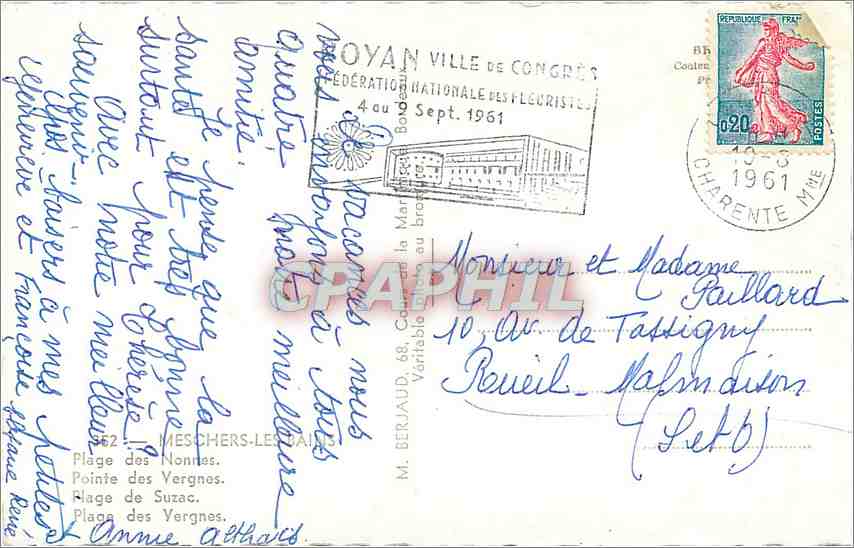 ROYAN VILLE DE CONGRÈS
FÉDÉRATION NATIONALE DES FLEURISTES
4 au Sept. 1961
REPUBLIQUE FRAN
0,20
POSTES
1961
CHARENTE Mme
vacances nous
vous envoyons à tous
quatre notre meilleure
amitié.
Je pense que la
santé est très bonne
surtout pour Thérèse ?
Avec notre meilleur
souvenir.
Gros baisers à mes petites
Geneviève et Françoise
René
Annie
Monsieur et Madame
Paillard
10, Av. de Tassigny
Rueil-Malmaison
(S et O)
M. BERJAUD, 68, Cours de la Martinique Bordeaux
Véritable photo au bromure
352 — MESCHERS-LES-BAINS
Plage des Nonnes.
Pointe des Vergnes.
Plage de Suzac.
Plage des Vergnes.
CPAPHIL